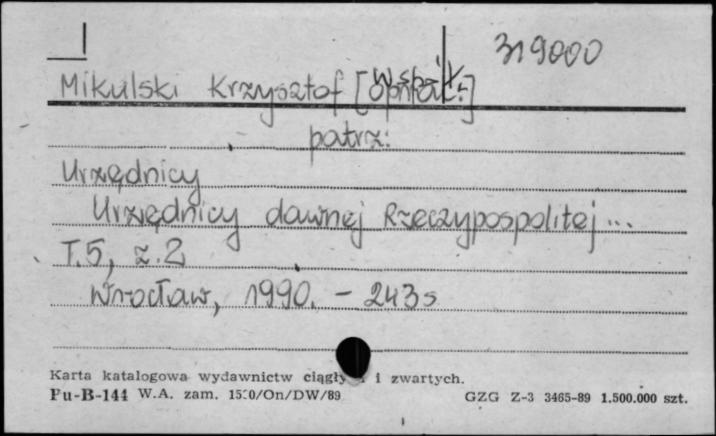 319000
Mikulski Krzysztof [Współ.]
patrz:
Urzędnicy
Urzędnicy dawnej Rzeczypospolitej...
T.5, z.2
Wrocław, 1990. - 243s
Karta katalogowa wydawnictw ciągły i zwartych.
Pu-B-144 W.A. zam. 1520/On/DW/89 GZG Z-3 3465-89 1.500.000 szt.